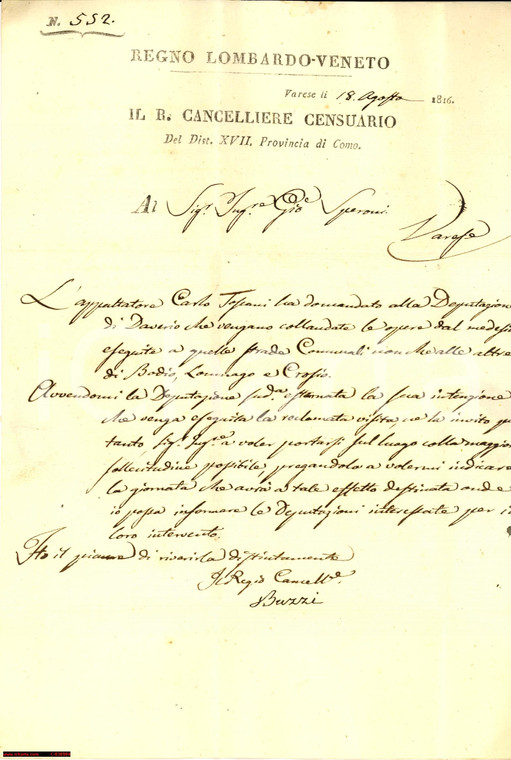 N. 552.
REGNO LOMBARDO-VENETO
Varese li 18. Agosto 1816.
IL R. CANCELLIERE CENSUARIO
Del Dist. XVII. Provincia di Como.
Al Sigr. Ingre. Gioe. Speroni.
Varese
L'appaltatore Carlo Tossani ha domandato alla Deputazione
di Daverio che vengano collaudate le opere dal medesi
eseguite a quelle strade Comunali non che alle altre
di Bodio, Lomnago e Crosio.
Avvendomi la Deputazione sudda. esternata la sua intenzione
che venga eseguita la reclamata visita, ne la invito per
tanto, Sigr. Ingre. a voler portarsi sul luogo colla maggior
sollecitudine possibile, pregandola a volermi indicare
la giornata che avrà a tale effetto destinata onde
io possa informare le Deputazioni interessate per i
loro intervento.
Ho il piacere di riverirla distintamente
Il Regio Cancelle.
Buzzi